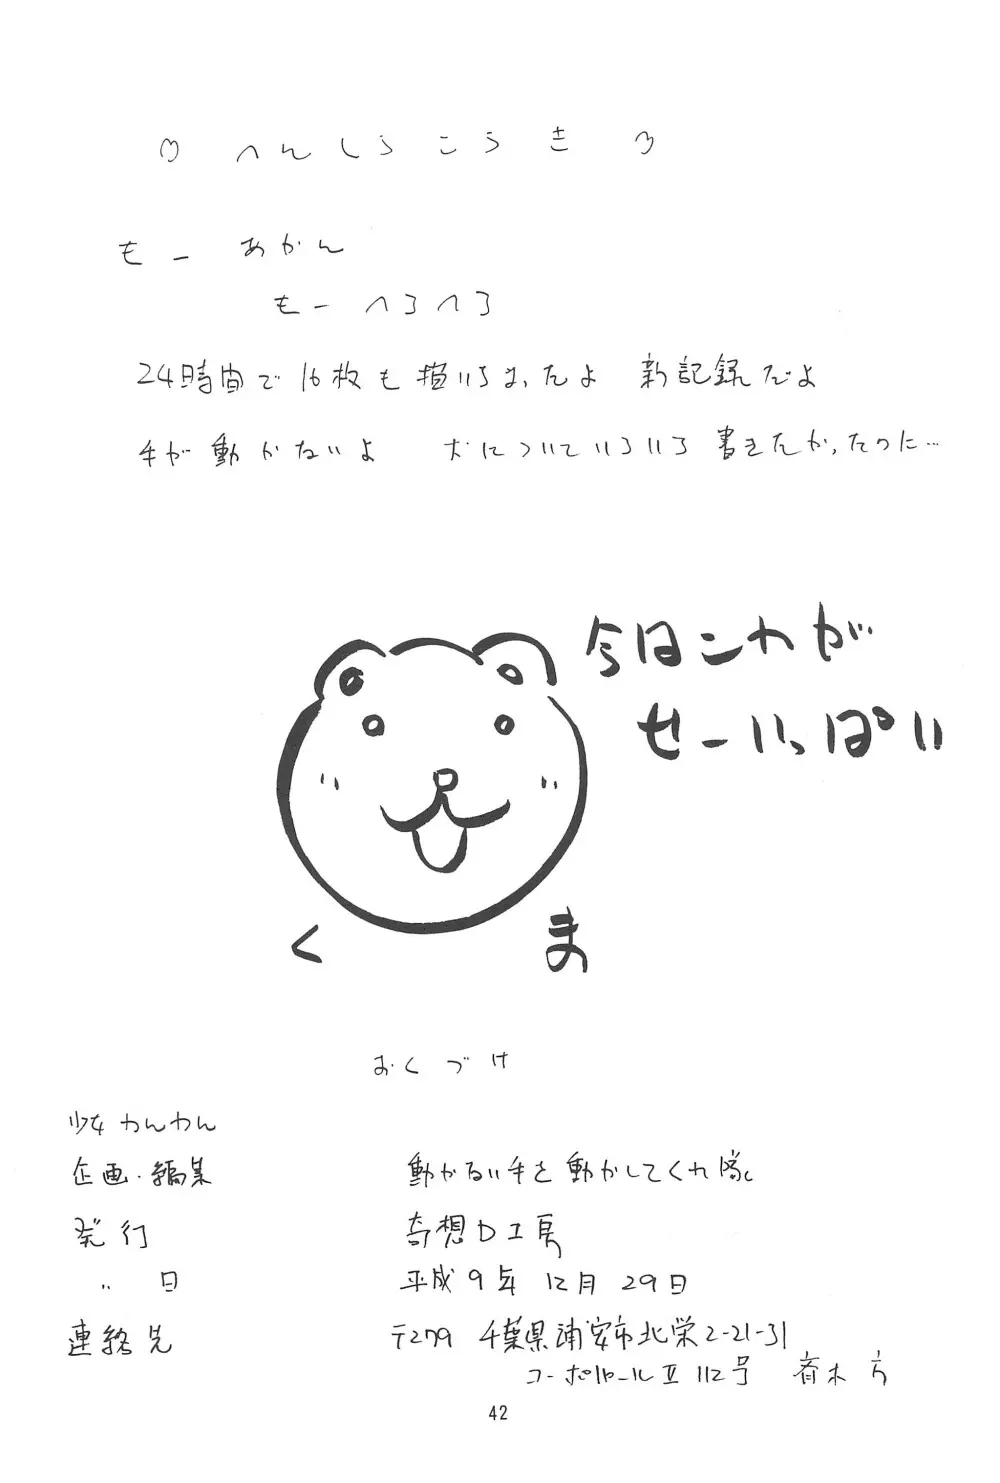 ♡ へんしうこうき ♡
もー あかん
もー へろへろ
24時間で16枚も描いちまったよ 新記録だよ
手が動かないよ 犬についていろいろ書きたかったのに…
今はこれが
せーいっぱい
く ま
おくづけ
少女わんわん
企画・編集 動かない手を動かしてくれ隊
発行 奇想D工房
〃 日 平成9年12月29日
連絡先 〒279 千葉県浦安市北栄2-21-31
Ⅱ 112号 方
42